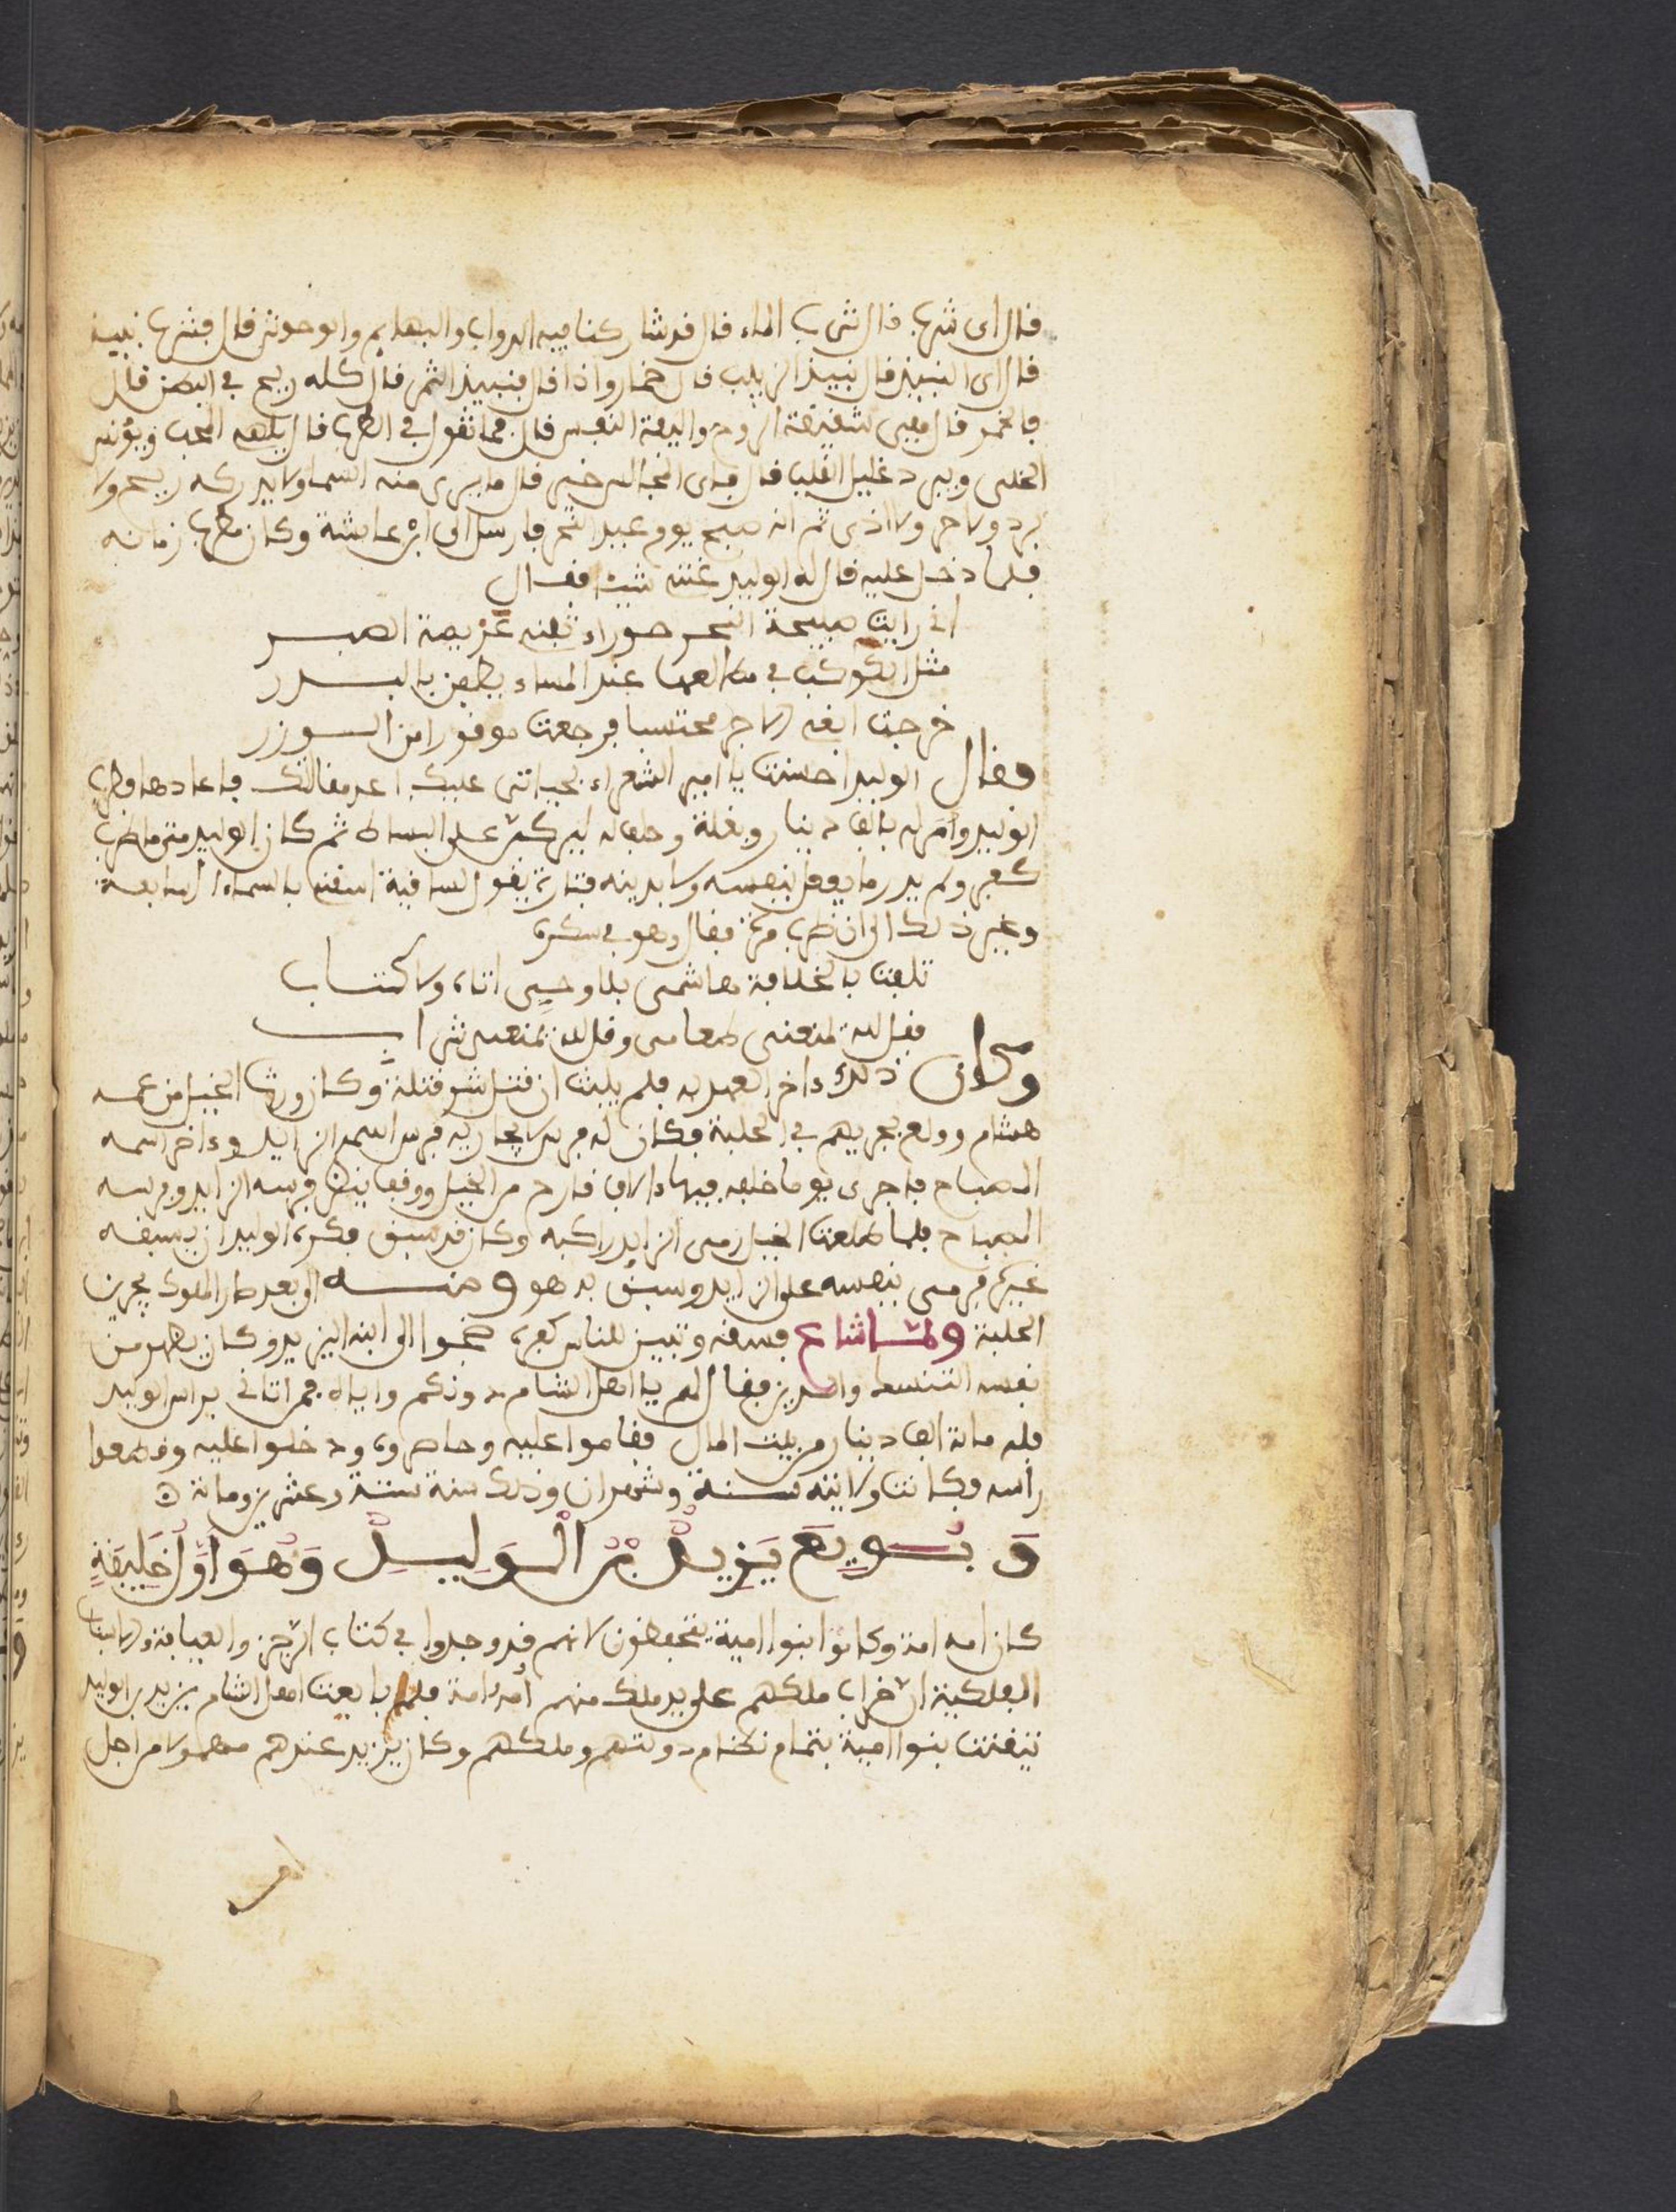 قال اى شرب قال شرب الماء قال قد شاركنا فيه الدواب والبهايم والوحوش قال فشرب نبيذ
قال اى النبيذ قال نبيذ الزبيب قال خمار واذا قال فنبيذ التمر قال كله ريح في البطن قال
فالخمر قال فهى شقيقة الروح واليفة النفس قال فما تقول في الطرب قال يلهه المحب ويؤنس
الخلى ويبرد غليل القلب قال فاى المجالس خير قال ما يرى منه السما ولا يدركه ريح ولا
برد ولا حر ولا اذى ثم انه صبح يوم عيد النحر فارسل الى ابن عايشة وكان مطرب زمانه
فلما دخل عليه قال له الوليد غننى شيئا فقال
انى رايت صبيحة النحر حوراء عزيمة الصبر
مثل الكوكب في مطالعها عند المساء يطفن بالبدر
خرجت ابغى الاجر محتسبا فرجعت موفورا من الوزر
وقال الوليد احسنت يا امير الشعراء بحياتى عليك اعد مقالتك فاعادها فطرب
الوليد وامر له بالف دينار وبغلة وحلف له ليركبن على البساط ثم كان الوليد متى ما طرب
كفر ولم يدر ما يفعل بنفسه ولا بدينه فتارة يقول لساقية اسقنى بالسماء السابعة
وغير ذلك الى ان طرب مرة فقال وهو في سكره
تلعب بالخلافة هاشمى بلا وحى اتاه ولا كتاب
فقل لله يمنعنى طعامى وقل لله يمنعنى شراب
وكان ذلك ءاخر العهد به فلم يلبث ان قتل شر قتلة وكان ورث الخيل من عمه
هشام وولع بجريهم في الحلبة فكان له فرس لا يجاريه فرس اسمه الزايد وءاخر اسمه
المصباح فاجرى يوما خلفه فيها الاف قارح من الخيل ووقف ينظر فرسه الزايد وفرسه
المصباح فلما طلعت الخيل رمى الزايد راكبه وكان قد سبق فكره الوليد ان يسبقه
غيره فرمى بنفسه على الزايد وسبق به هو ومنه الى بعد صار الملوك يجرين
الحلبة ولما شاع فسقه وتبين للناس كفره ضجوا الى ابنه اليزيد وكان يظهر من
نفسه التنسك والدين فقال لهم يا اهل الشام دونكم واياه فمن اتانى براس الوليد
فله مائة الف دينار من بيت المال فقاموا عليه وحاصروه ودخلوا عليه وقطعوا
راسه فكانت ولايته سنة وشهران وذلك سنة ستة وعشرين ومائة
وَبُويِعَ يَزِيدُ بْنُ الْوَلِيدِ وَهُوَ أَوَّلُ خَلِيفَةٍ
كان امه امة وكانوا بنوا امية يتحفظون لانهم قد وجدوا في كتاب الزجر والعيافة
الفلكية ان خراب ملكهم على يد ملك منهم أمه امة فلما بايعت اهل الشام يزيد بن الوليد
تيقنت بنوا امية بتمام نظام دولتهم وملكهم وكان يزيد عندهم من اجل